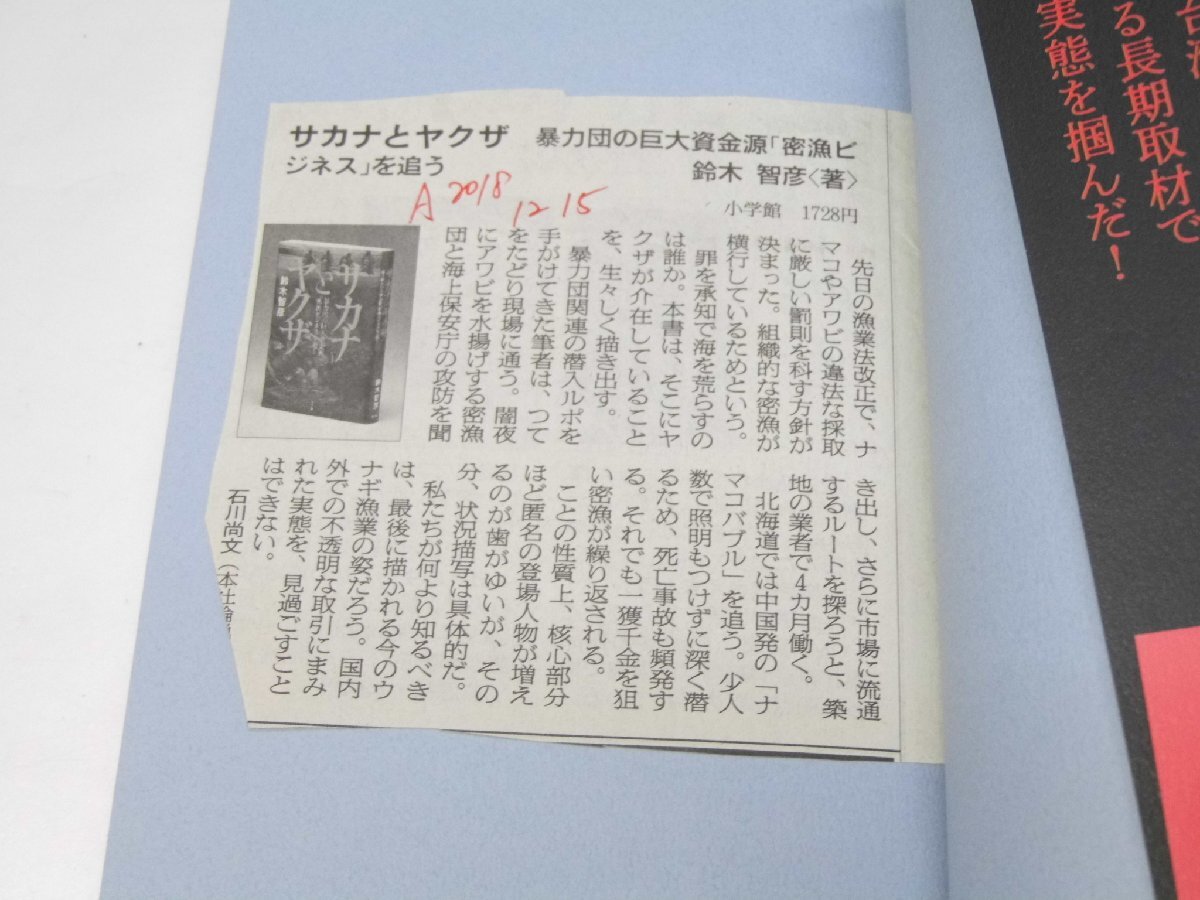 サカナとヤクザ 暴力団の巨大資金源「密漁ビ
ジネス」を追う 鈴木 智彦〈著〉
A 2018 12 15
小学館 1728円
先日の漁業法改正で、ナ
マコやアワビの違法な採取
に厳しい罰則を科す方針が
決まった。組織的な密漁が
横行しているためという。
罪を承知で海を荒らすの
は誰か。本書は、そこにヤ
クザが介在していること
を、生々しく描き出す。
暴力団関連の潜入ルポを
手がけてきた筆者は、つて
をたどり現場に通う。闇夜
にアワビを水揚げする密漁
団と海上保安庁の攻防を聞
き出し、さらに市場に流通
するルートを探ろうと、築
地の業者で4カ月働く。
北海道では中国発の「ナ
マコバブル」を追う。少人
数で照明もつけずに深く潜
るため、死亡事故も頻発す
る。それでも一獲千金を狙
い密漁が繰り返される。
ことの性質上、核心部分
ほど匿名の登場人物が増え
るのが歯がゆいが、その
分、状況描写は具体的だ。
私たちが何より知るべき
は、最後に描かれる今のウ
ナギ漁業の姿だろう。国内
外での不透明な取引にまみ
れた実態を、見過ごすこと
はできない。
石川尚文(本社論
サカナ
と
ヤクザ
鈴木智彦
る長期取材で
実態を掴んだ!